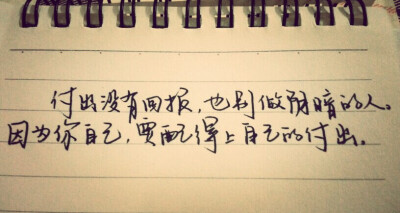 付出没有回报,也别做阴暗的人。
因为你自己,要配得上自己的付出.